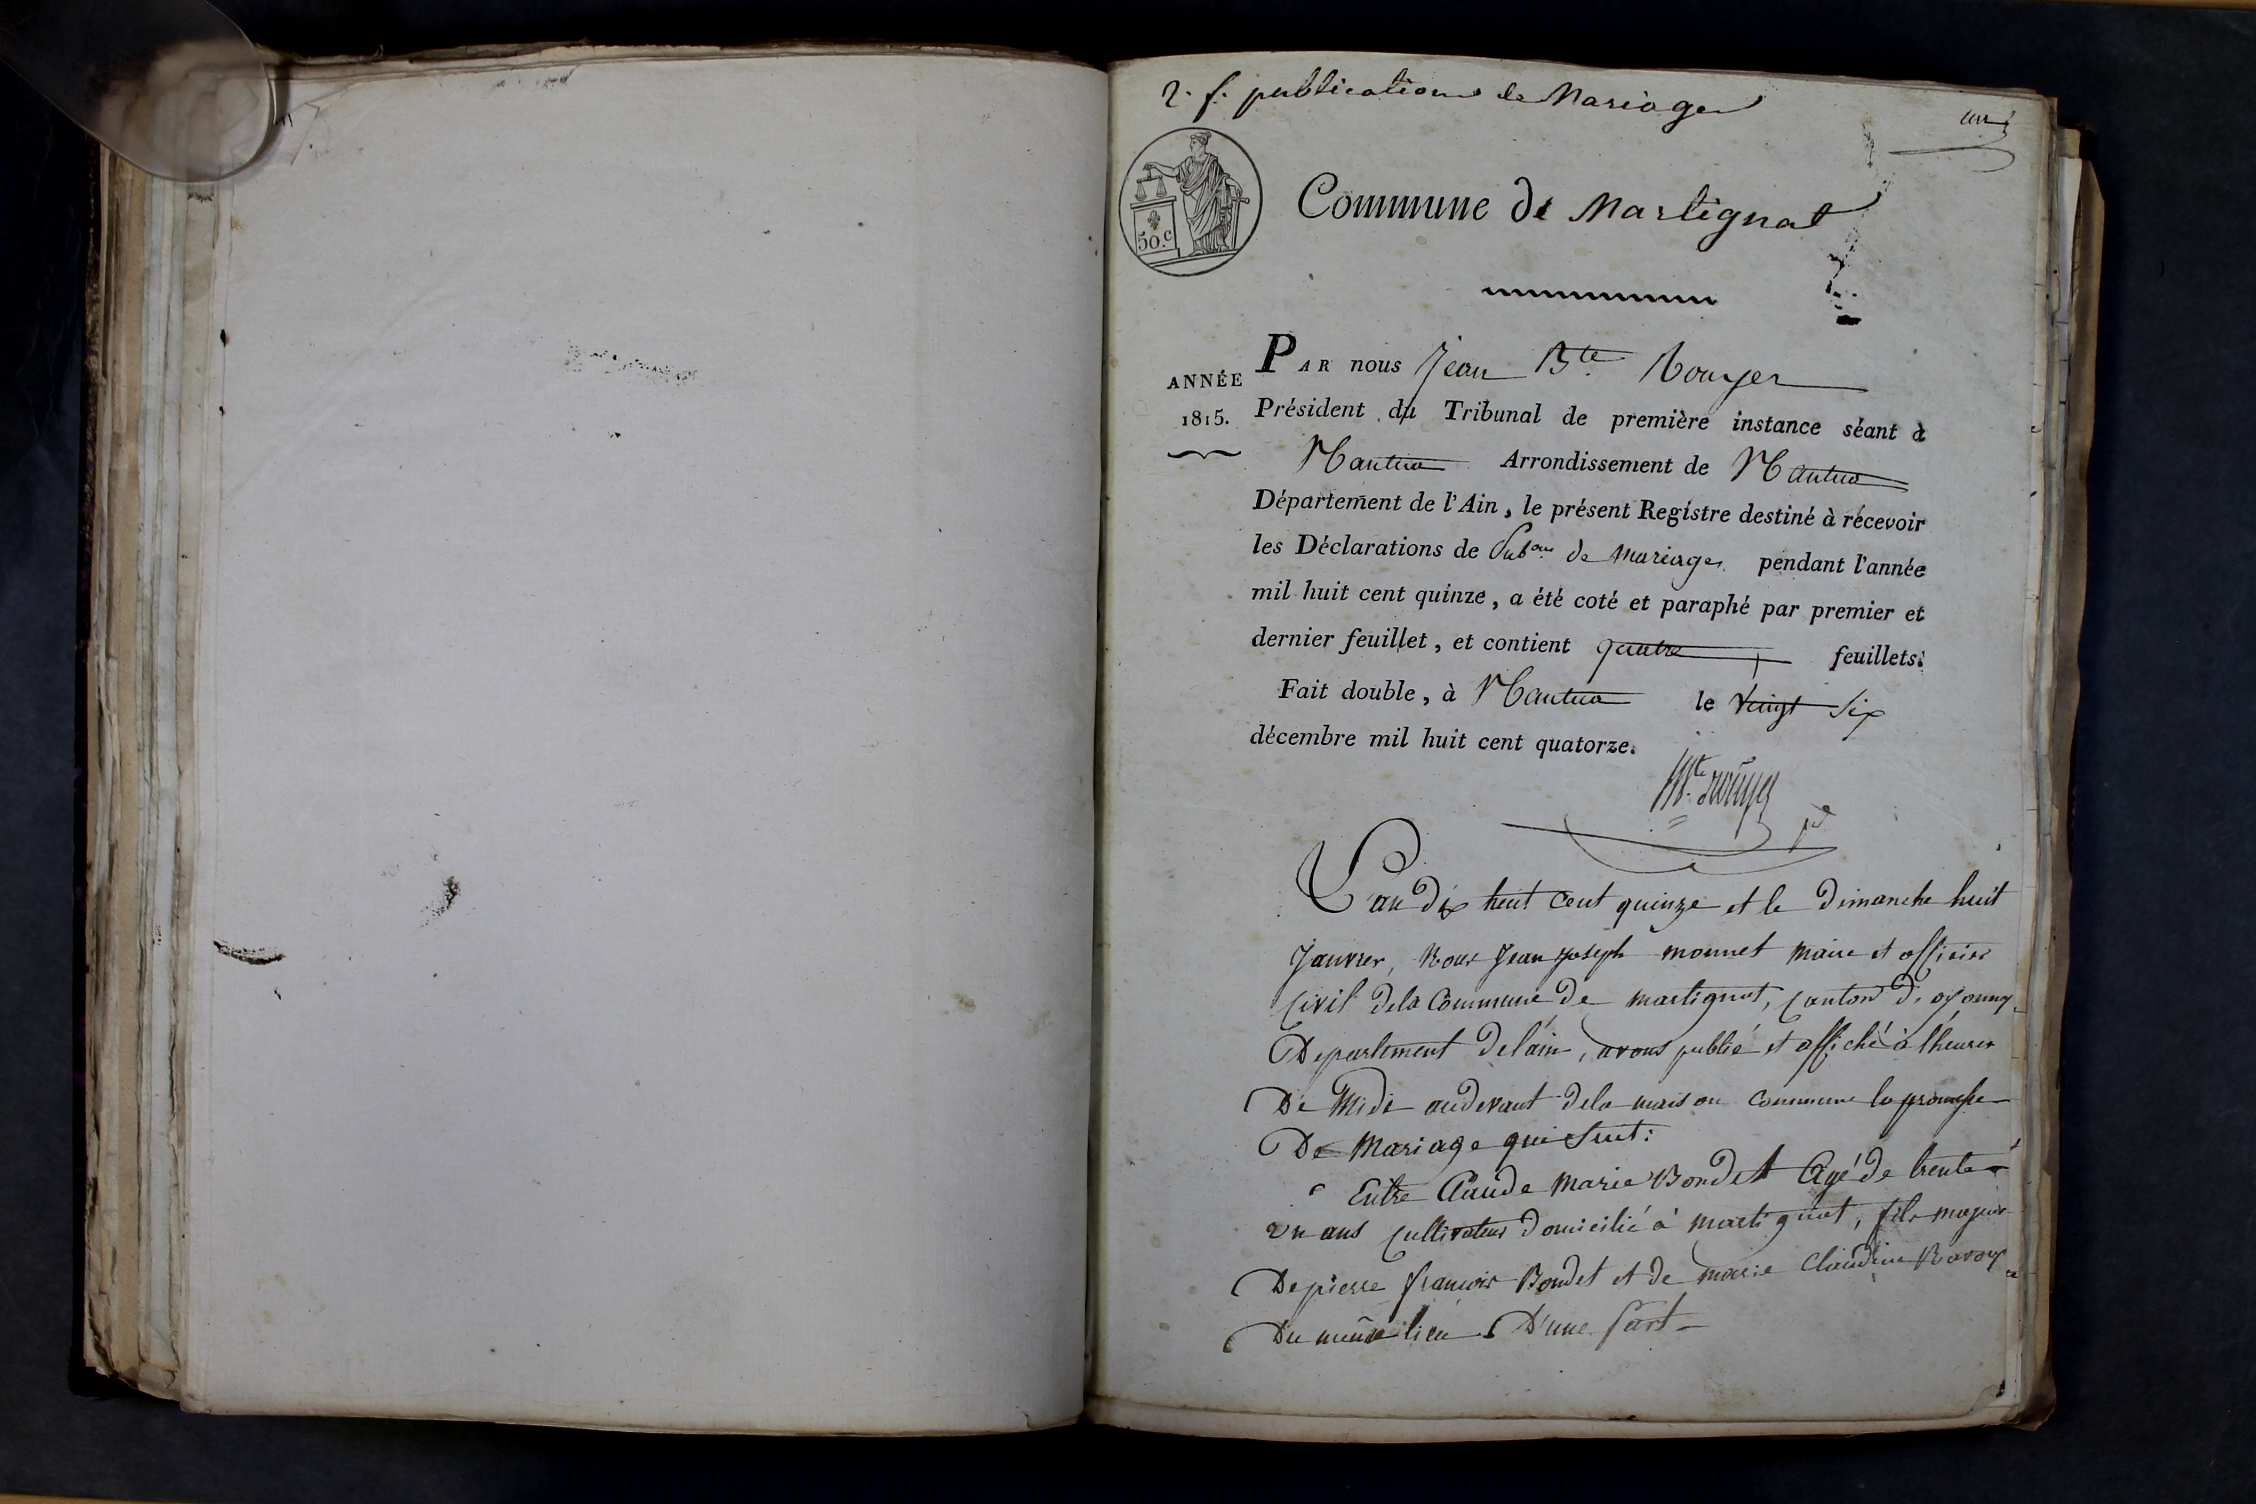 2. f. publications de Mariages
un
50.c
Commune de Martignat
ANNÉE
1815.
PAR nous Jean Bte Rouyer
Président du Tribunal de première instance séant à
Nantua Arrondissement de Nantua
Département de l'Ain, le présent Registre destiné à récevoir
les Déclarations de Pubons de Mariages pendant l'année
mil huit cent quinze, a été coté et paraphé par premier et
dernier feuillet, et contient quatre feuillets.
Fait double, à Nantua le vingt Six
décembre mil huit cent quatorze.
Bte Rouyer
L'an dix huit cent quinze et le Dimanche huit
Janvier, Nous Jean Joseph monnet Maire et officier
Civil dela Commune De martignat, Canton d'oyonnax
Département Delain, avons publié et affiché à l'heure
De Midi audevant dela maison commune la promesse
De Mariage qui Suit:
Entre Claude Marie Bondet Agé De trente
un ans Cultivateur Domicilié à martignat, fils majeur
De pierre françois Bondet et de marie Claudine
Du même lieu D'une Part